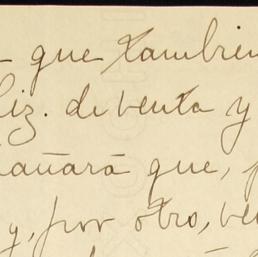 que tambien
liz. de venta y
añará que,
y, por otro, ve